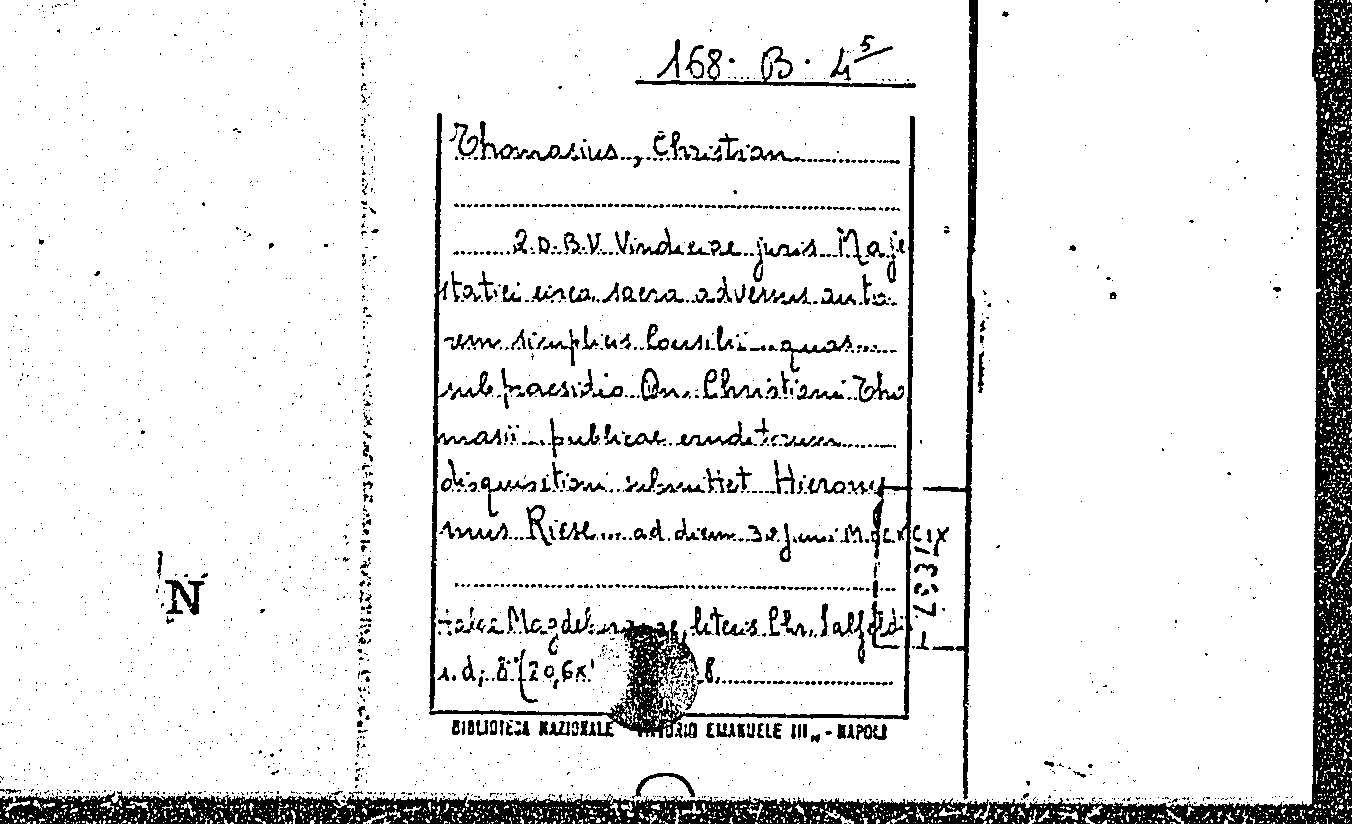 168. B. 4 5
Thomasius, Christian
Q.D.B.V. Vindiciae juris Maje
statici circa sacra adversus auto
rem simplicis Consilii quas
sub praesidio Dn. Christiani Tho
masii publicae eruditorum
disquisitioni submittet Hierony
mus Riese ad diem Juni
Halae Magdeburgicae, literis Chr. Salfeldii
s.d; 8° (20,6x
BIBLIOTECA NAZIONALE VITTORIO EMANUELE III„ - NAPOLI
N